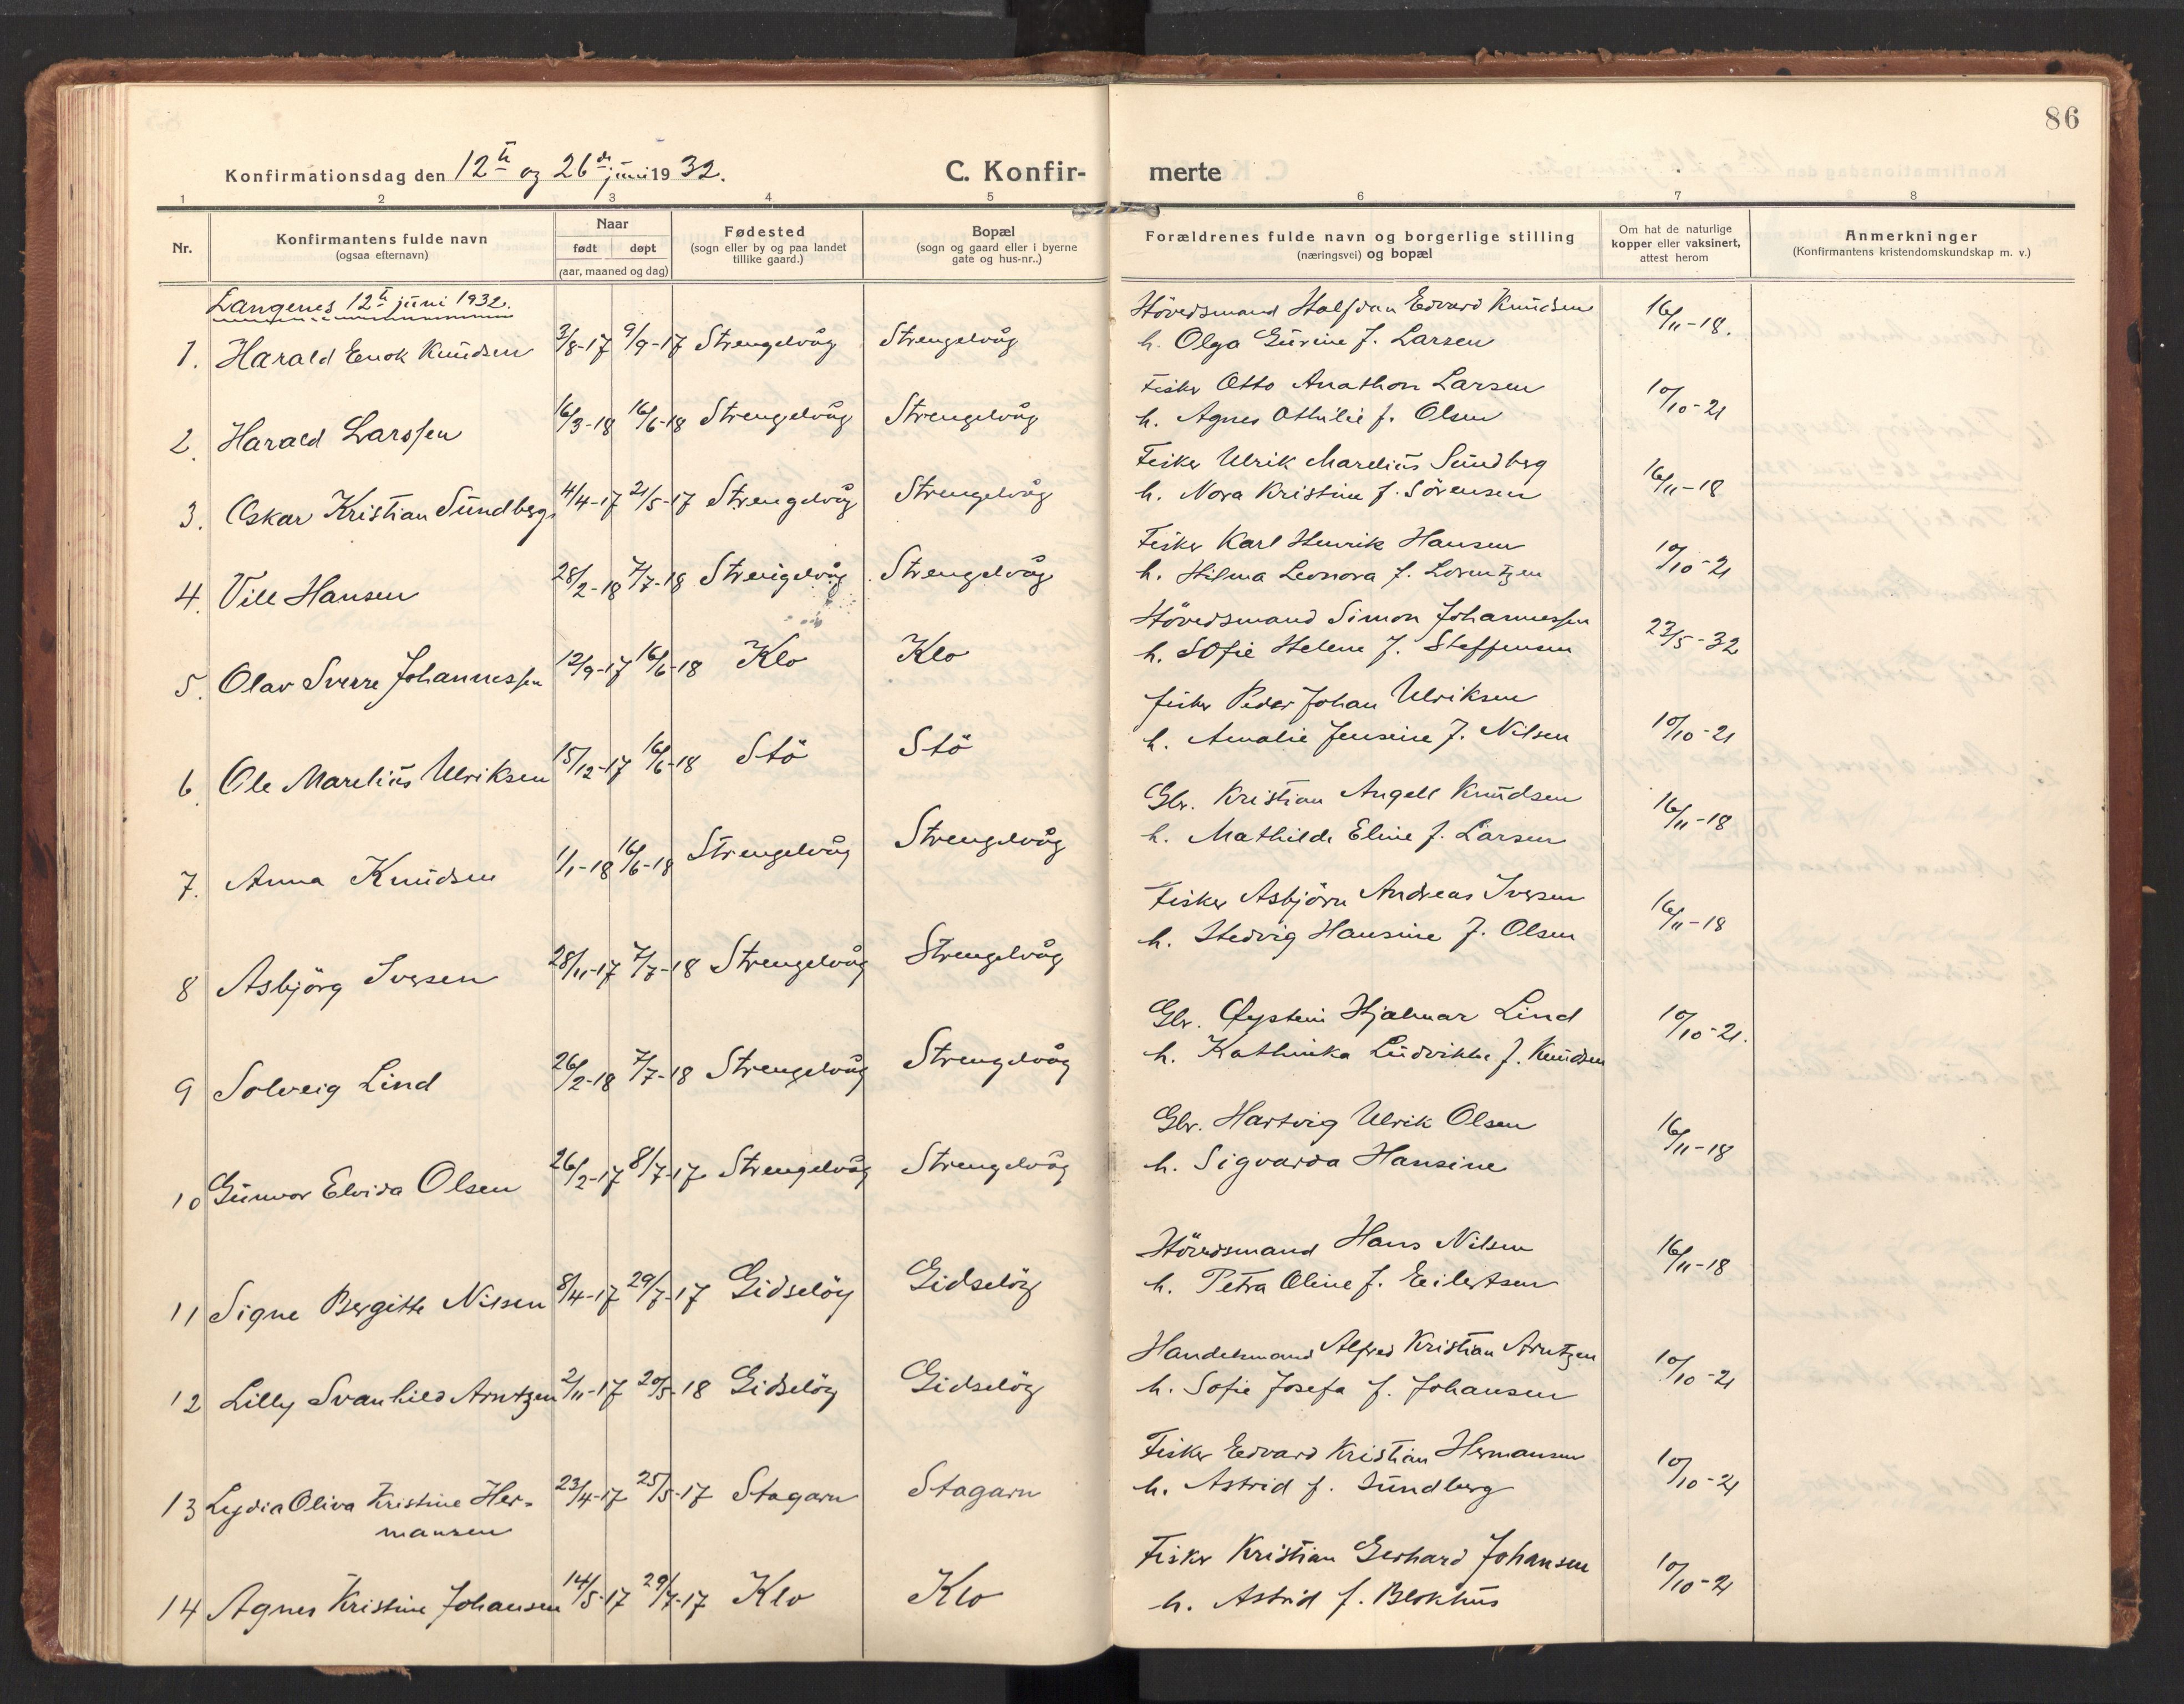 86
Konfirmationsdag den 12te og 26de juni 1932.
C. Konfir- merte
1 2 3 4 5 6 7 8
Nr.
Konfirmantens fulde navn
(ogsaa efternavn)
Naar
født døpt
(aar, maaned og dag)
Fødested
(sogn eller by og paa landet
tillike gaard.)
Bopæl
(sogn og gaard eller i byerne
gate og hus-nr..)
Forældrenes fulde navn og borgerlige stilling
(næringsvei) og bopæl
Om hat de naturlige
kopper eller vaksinert,
attest herom
Anmerkninger
(Konfirmantens kristendomskundskap m. v.)
Langenes 12te juni 1932.
1. Harald Enok Knudsen 3/8-17 9/9-17 Strengelvåg Strengelvåg Hövedsmand Halfdan Edvard Knudsen 16/11-18.
h. Olga Gurine f. Larsen
2. Harald Larssen 16/3-18 16/6-18 Strengelvåg Strengelvåg Fisker Otto Anathon Larsen 10/10-21
h. Agnes Othilie f. Olsen
3. Oskar Kristian Sundberg 4/4-17 21/5-17 Strengelvåg Strengelvåg Fisker Ulrik Marelius Sundberg 16/11-18
h. Nora Kristine f. Sörensen
4. Vill Hansen 28/2-18 7/7-18 Strengelvåg Strengelvåg Fisker Karl Henrik Hansen 10/10-21
h. Hilma Leonora f. Lorentzen
5. Olav Sverre Johannessen 12/9-17 16/6-18 Klo Klo Hövedsmand Simon Johannessen 23/5-32
h. Sofie Helene f. Steffensen
6. Ole Marelius Ulriksen 15/12-17 16/6-18 Stö Stö fisker Peder Johan Ulriksen 10/10-21
h. Amalie Jensine f. Nilsen
7. Anna Knudsen 1/1-18 16/6-18 Strengelvåg Strengelvåg Gbr. Kristian Angell Knudsen 16/11-18
h. Mathilde Eline f. Larsen
8 Asbjörg Iversen 28/11-17 7/7-18 Strengelvåg Strengelvåg Fisker Asbjörn Andreas Iversen 16/11-18
h. Hedvig Hansine f. Olsen
9 Solveig Lind 26/2-18 7/7-18 Strengelvåg Strengelvåg Gbr. Øystein Hjalmar Lind 10/10-21.
h. Kathinka Ludvikke f. Knudsen
10 Gunvor Elvida Olsen 26/2-17 8/7-17 Strengelvåg Strengelvåg Gbr. Hartvig Ulrik Olsen 16/11-18
h. Sigvarda Hansine
11 Signe Bergitte Nilsen 8/4-17 29/7-17 Gidselöy Gidselöy Hövedsmand Hans Nilsen 16/11-18
h. Petra Oline f. Eilertsen
12 Lilly Svanhild Arntzen 2/11-17 20/5-18 Gidselöy Gidselöy Handelsmand Alfred Kristian Arntzen 10/10-21
h. Sofie Josefa f. Johansen
13 Lydia Oliva Kristine Her- 23/4-17 25/5-17 Stagarn Stagarn Fisker Edvard Kristian Hermansen 10/10-21
mansen h. Astrid f. Sundberg
14 Agnes Kristine Johansen 14/5-17 29/7-17 Klo Klo Fisker Kristian Gerhard Johansen 10/10-21
h. Astrid f. Blokhus